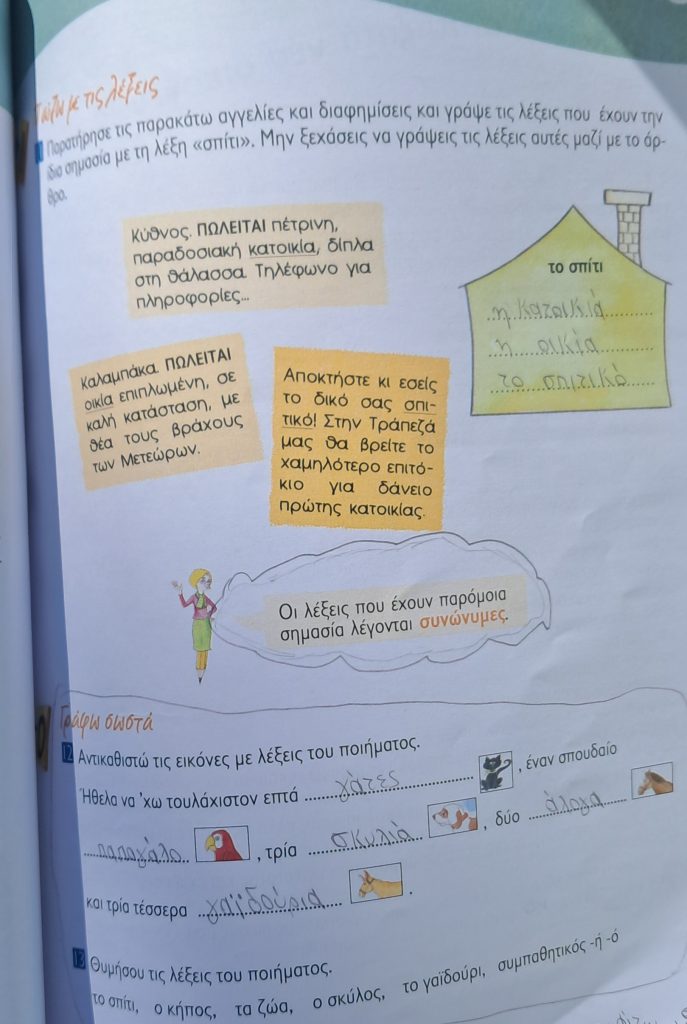 Παίζω με τις λέξεις
Παρατήρησε τις παρακάτω αγγελίες και διαφημίσεις και γράψε τις λέξεις που έχουν την
ίδια σημασία με τη λέξη «σπίτι». Μην ξεχάσεις να γράψεις τις λέξεις αυτές μαζί με το άρ-
θρο.
Κύθνος. ΠΩΛΕΙΤΑΙ πέτρινη,
παραδοσιακή κατοικία, δίπλα
στη θάλασσα. Τηλέφωνο για
πληροφορίες...
το σπίτι
η κατοικιά
η οικία
το σπιτικό
Καλαμπάκα. ΠΩΛΕΙΤΑΙ
οικία επιπλωμένη, σε
καλή κατάσταση, με
θέα τους βράχους
των Μετεώρων.
Αποκτήστε κι εσείς
το δικό σας σπι-
τικό! Στην Τράπεζά
μας θα βρείτε το
χαμηλότερο επιτό-
κιο για δάνειο
πρώτης κατοικίας.
Οι λέξεις που έχουν παρόμοια
σημασία λέγονται συνώνυμες.
Γράφω σωστά
12 Αντικαθιστώ τις εικόνες με λέξεις του ποιήματος.
Ήθελα να 'χω τουλάχιστον επτά γάτες , έναν σπουδαίο
παπαγάλο , τρία σκυλιά , δύο άλογα
και τρία τέσσερα γαϊδούρια .
13 Θυμήσου τις λέξεις του ποιήματος.
το σπίτι, ο κήπος, τα ζώα, ο σκύλος, το γαϊδούρι, συμπαθητικός -ή -ό